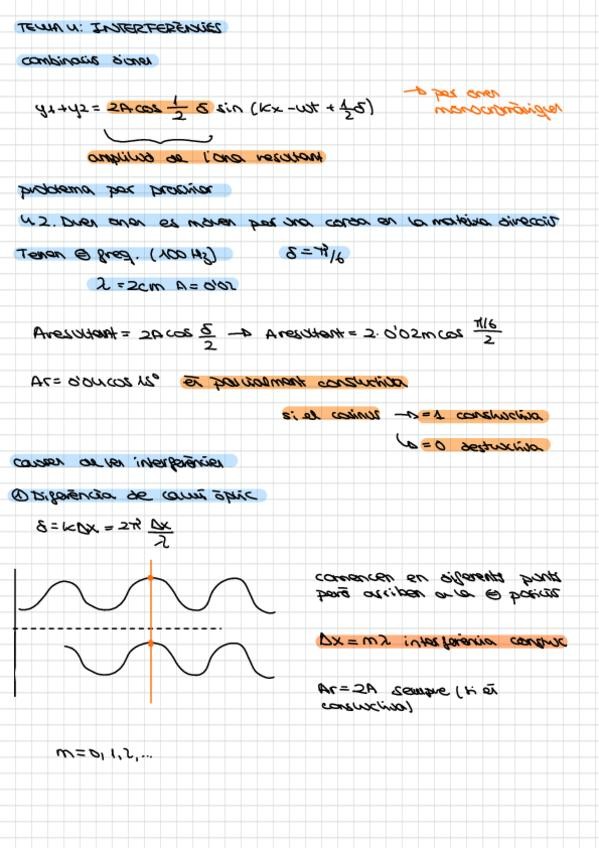 TEMA 4: INTERFERÈNCIES
combinació d'ones
y1+y2 = 2A cos 1/2 δ sin (kx - wt + 1/2 δ)
→ per ones
monocromàtiques
amplitud de l'ona resultant
problema per practicar
4.2. Dues ones es mouen per una corda en la mateixa direcció
Tenen ⊜ freq. (100 Hz) δ = π/6
λ = 2cm A = 0'02
Aresultant = 2A cos δ/2 → Aresultant = 2·0'02m cos (π/6)/2
Ar = 0'04 cos 15° és parcialment constructiva
si el cosinus → = 1 constructiva
↳ = 0 destructiva
causes de les interferències
① Diferència de camí òptic
δ = kΔx = 2π Δx/λ
comencen en diferents punts
però arriben a la ⊜ posició
Δx = mλ interferència construc
Ar = 2A sempre (si és
constructiva)
m = 0, 1, 2, ...